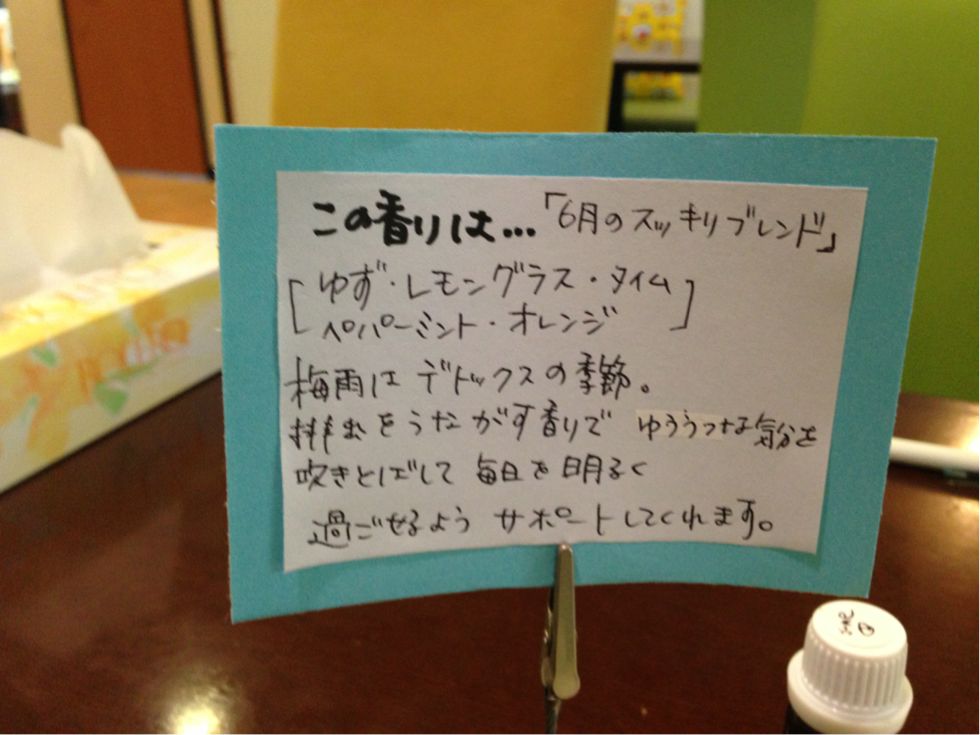 この香りは…「6月のスッキリブレンド」
[ゆず・レモングラス・タイム
ペパーミント・オレンジ]
梅雨はデトックスの季節。
排出をうながす香りで ゆううつな気分を
吹きとばして 毎日を明るく
過ごせるよう サポートしてくれます。